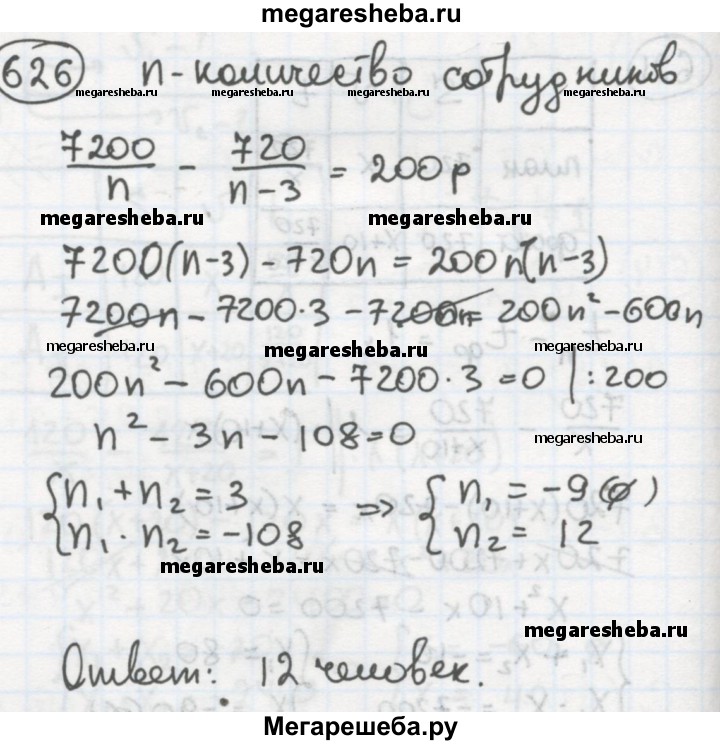 megaresheba.ru
626 n - количество сотрудников
megaresheba.ru megaresheba.ru megaresheba.ru megaresheba.ru megaresheba.ru
7200/n - 720/(n-3) = 200р
megaresheba.ru megaresheba.ru
7200(n-3) - 720n = 200n(n-3)
7200n - 7200·3 - 7200n = 200n² - 600n
megaresheba.ru megaresheba.ru
200n² - 600n - 7200·3 = 0 | :200
n² - 3n - 108 = 0 megaresheba.ru
{ n₁ + n₂ = 3 ⇒ { n₁ = -9 (∅)
n₁ · n₂ = -108 n₂ = 12
megaresheba.ru
megaresheba.ru
Ответ: 12 человек.
Мегарешеба.ру